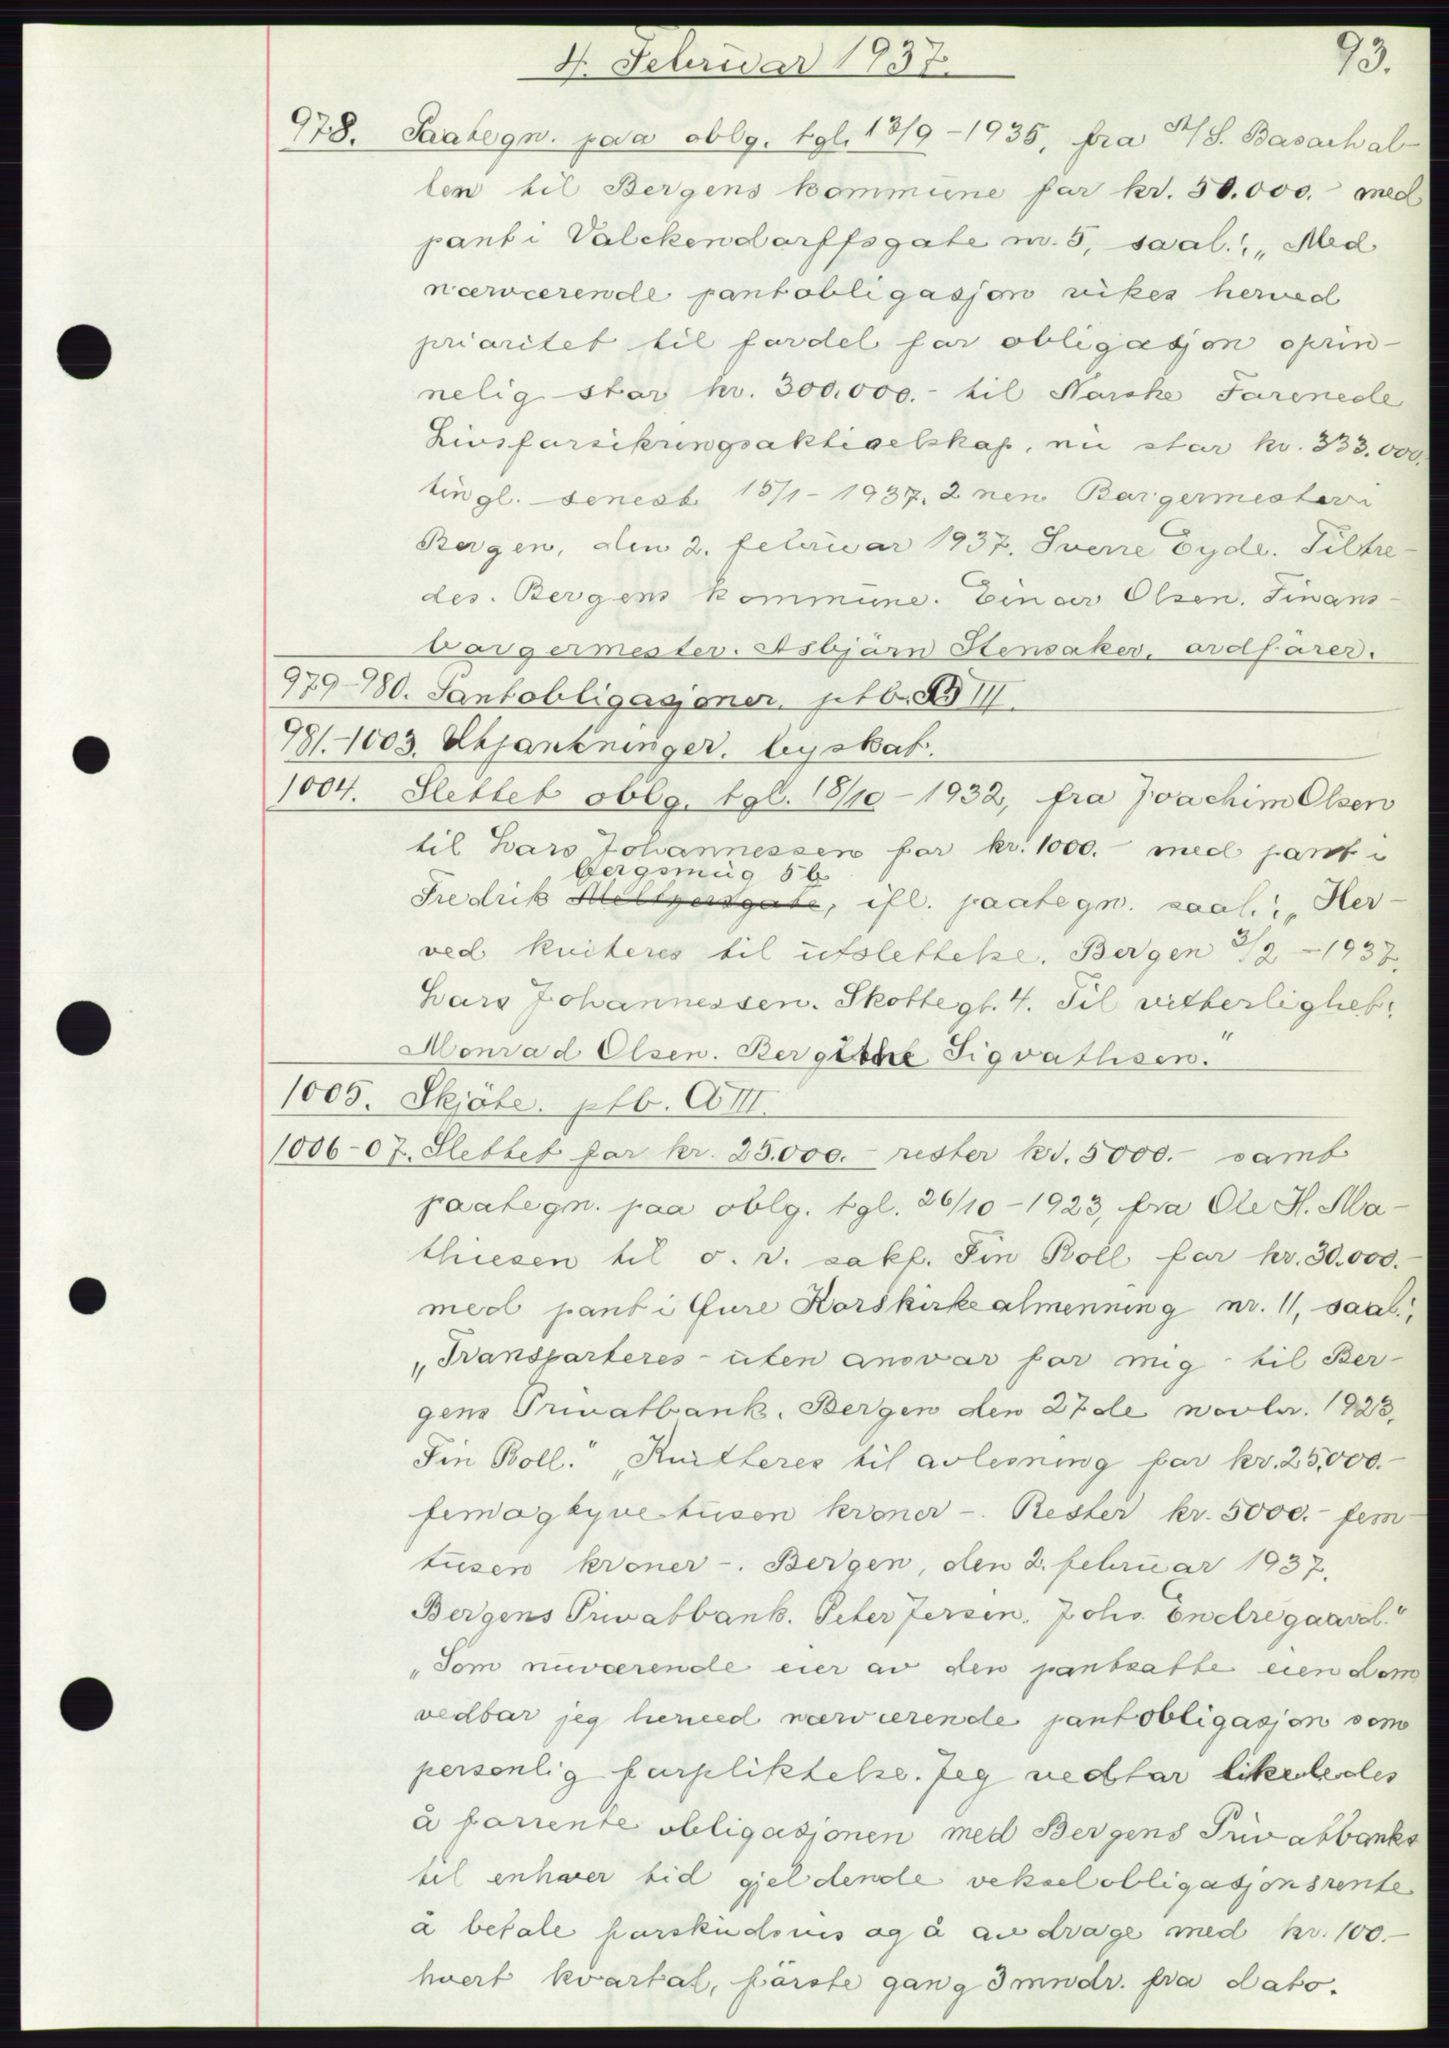 4. Februar 1937. 93.
978. Paategn. paa oblg. tgl. 13/9-1935, fra A/S. Basarhal-
len til Bergens kommune for kr. 50.000.- med
pant i Valckendorffsgate nr. 5, saal.: „Med
nærværende pantobligasjon vikes herved
prioritet til fordel for obligasjon oprin-
nelig stor kr. 300.000.- til Norske Forenede
Livsforsikringsaktieselskap, nu stor kr. 333.000.
tingl. senest 15/1-1937. 2nen Borgermester i
Bergen, den 2. februar 1937. Sverre Eyde. Tiltre-
des. Bergens kommune. Einar Olsen. Finans-
borgermester. Asbjörn Stensaker, ordförer.
979-980. Pantobligasjoner. ptb. B III.
981.-1003. Utpantninger. byskat.
1004. Slettet oblg. tgl. 18/10-1932, fra Joachim Olsen
til Lars Johannessen for kr. 1000.- med pant i
bergsmug 5b
Fredrik Meltzersgate, ifl. paategn. saal.: „Her-
ved kviteres til utslettelse. Bergen 3/2-1937.
Lars Johannessen. Skottegt. 4. Til vitterlighet:
Monrad Olsen. Bergithe Sigvathsen."
1005. Skjöte. ptb. A III.
1006-07. Slettet for kr. 25.000.- rester kr. 5000.- samt
paategn. paa oblg. tgl. 26/10-1923, fra Ole H. Ma-
thiesen til o. r. sakf. Fin Boll for kr. 30.000.-
med pant i Övre Korskirkealmenning nr. 11, saal.:
„Transporteres - uten ansvar for mig - til Ber-
gens Privatbank. Bergen den 27de novbr. 1923.
Fin Boll." „Kvitteres til avlesning for kr. 25.000.-
femogtyvetusen kroner -. Rester kr. 5000.- fem
tusen kroner -. Bergen, den 2. februar 1937.
Bergens Privatbank. Peter Jersin. Johs. Endregaard."
„Som nuværende eier av den pantsatte eiendom
vedtar jeg herved nærværende pantobligasjon som
personlig forpliktelse. Jeg vedtar likeledes
å forrente obligasjonen med Bergens Privatbanks
til enhver tid gjeldende vekselobligasjonsrente
å betale forskudsvis og å avdrage med kr. 100.-
hvert kvartal, förste gang 3 mndr. fra dato.